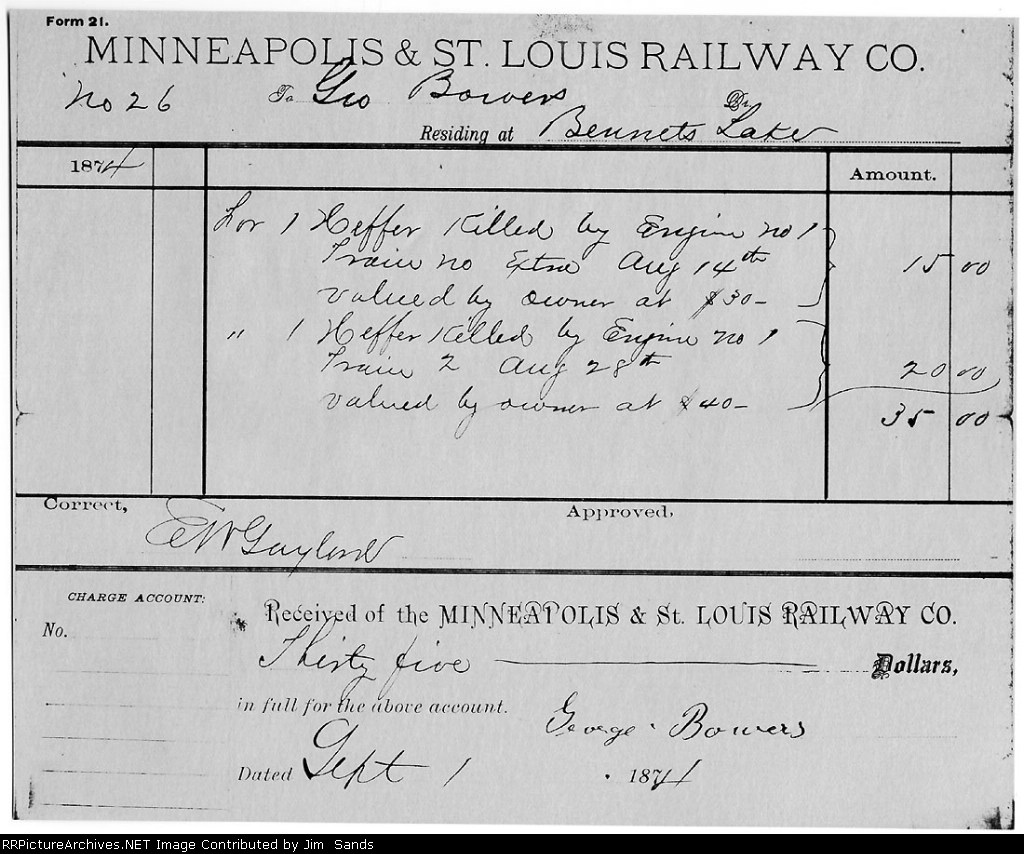 Form 21.
MINNEAPOLIS & ST. LOUIS RAILWAY CO.
No 26 To Geo Bowers Dr.
Residing at Bennets Lake
1874 Amount.
For 1 Heffer Killed by Engine no 1
Train no Extra Aug 14th 15 00
valued by owner at $30-
" 1 Heffer Killed by Engine no 1
Train 2 Aug 28th 20 00
valued by owner at $40-
35 00
Correct, Approved,
EW Gaylord
CHARGE ACCOUNT:
Received of the MINNEAPOLIS & St. LOUIS RAILWAY CO.
No.
Thirty five Dollars,
in full for the above account.
George Bowers
Dated Sept 1 1874
RRPictureArchives.NET Image Contributed by Jim Sands